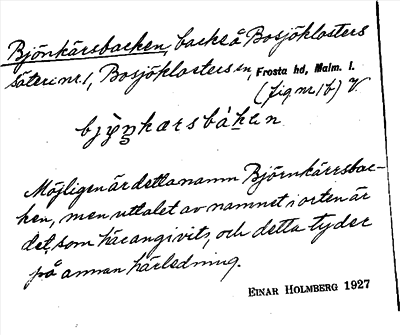 Bjönkärsbacken, backe å Bosjöklosters
säteri nr. 1, Bosjöklosters sn, Frosta hd, Malm. l.
(fig nr 1 b) V
bjö̀ŋkærsbákən
Möjligen är detta namn Björnkärrsbac-
ken, men uttalet av namnet i orten är
det, som här angivits, och detta tyder
på annan härledning.
EINAR HOLMBERG 1927